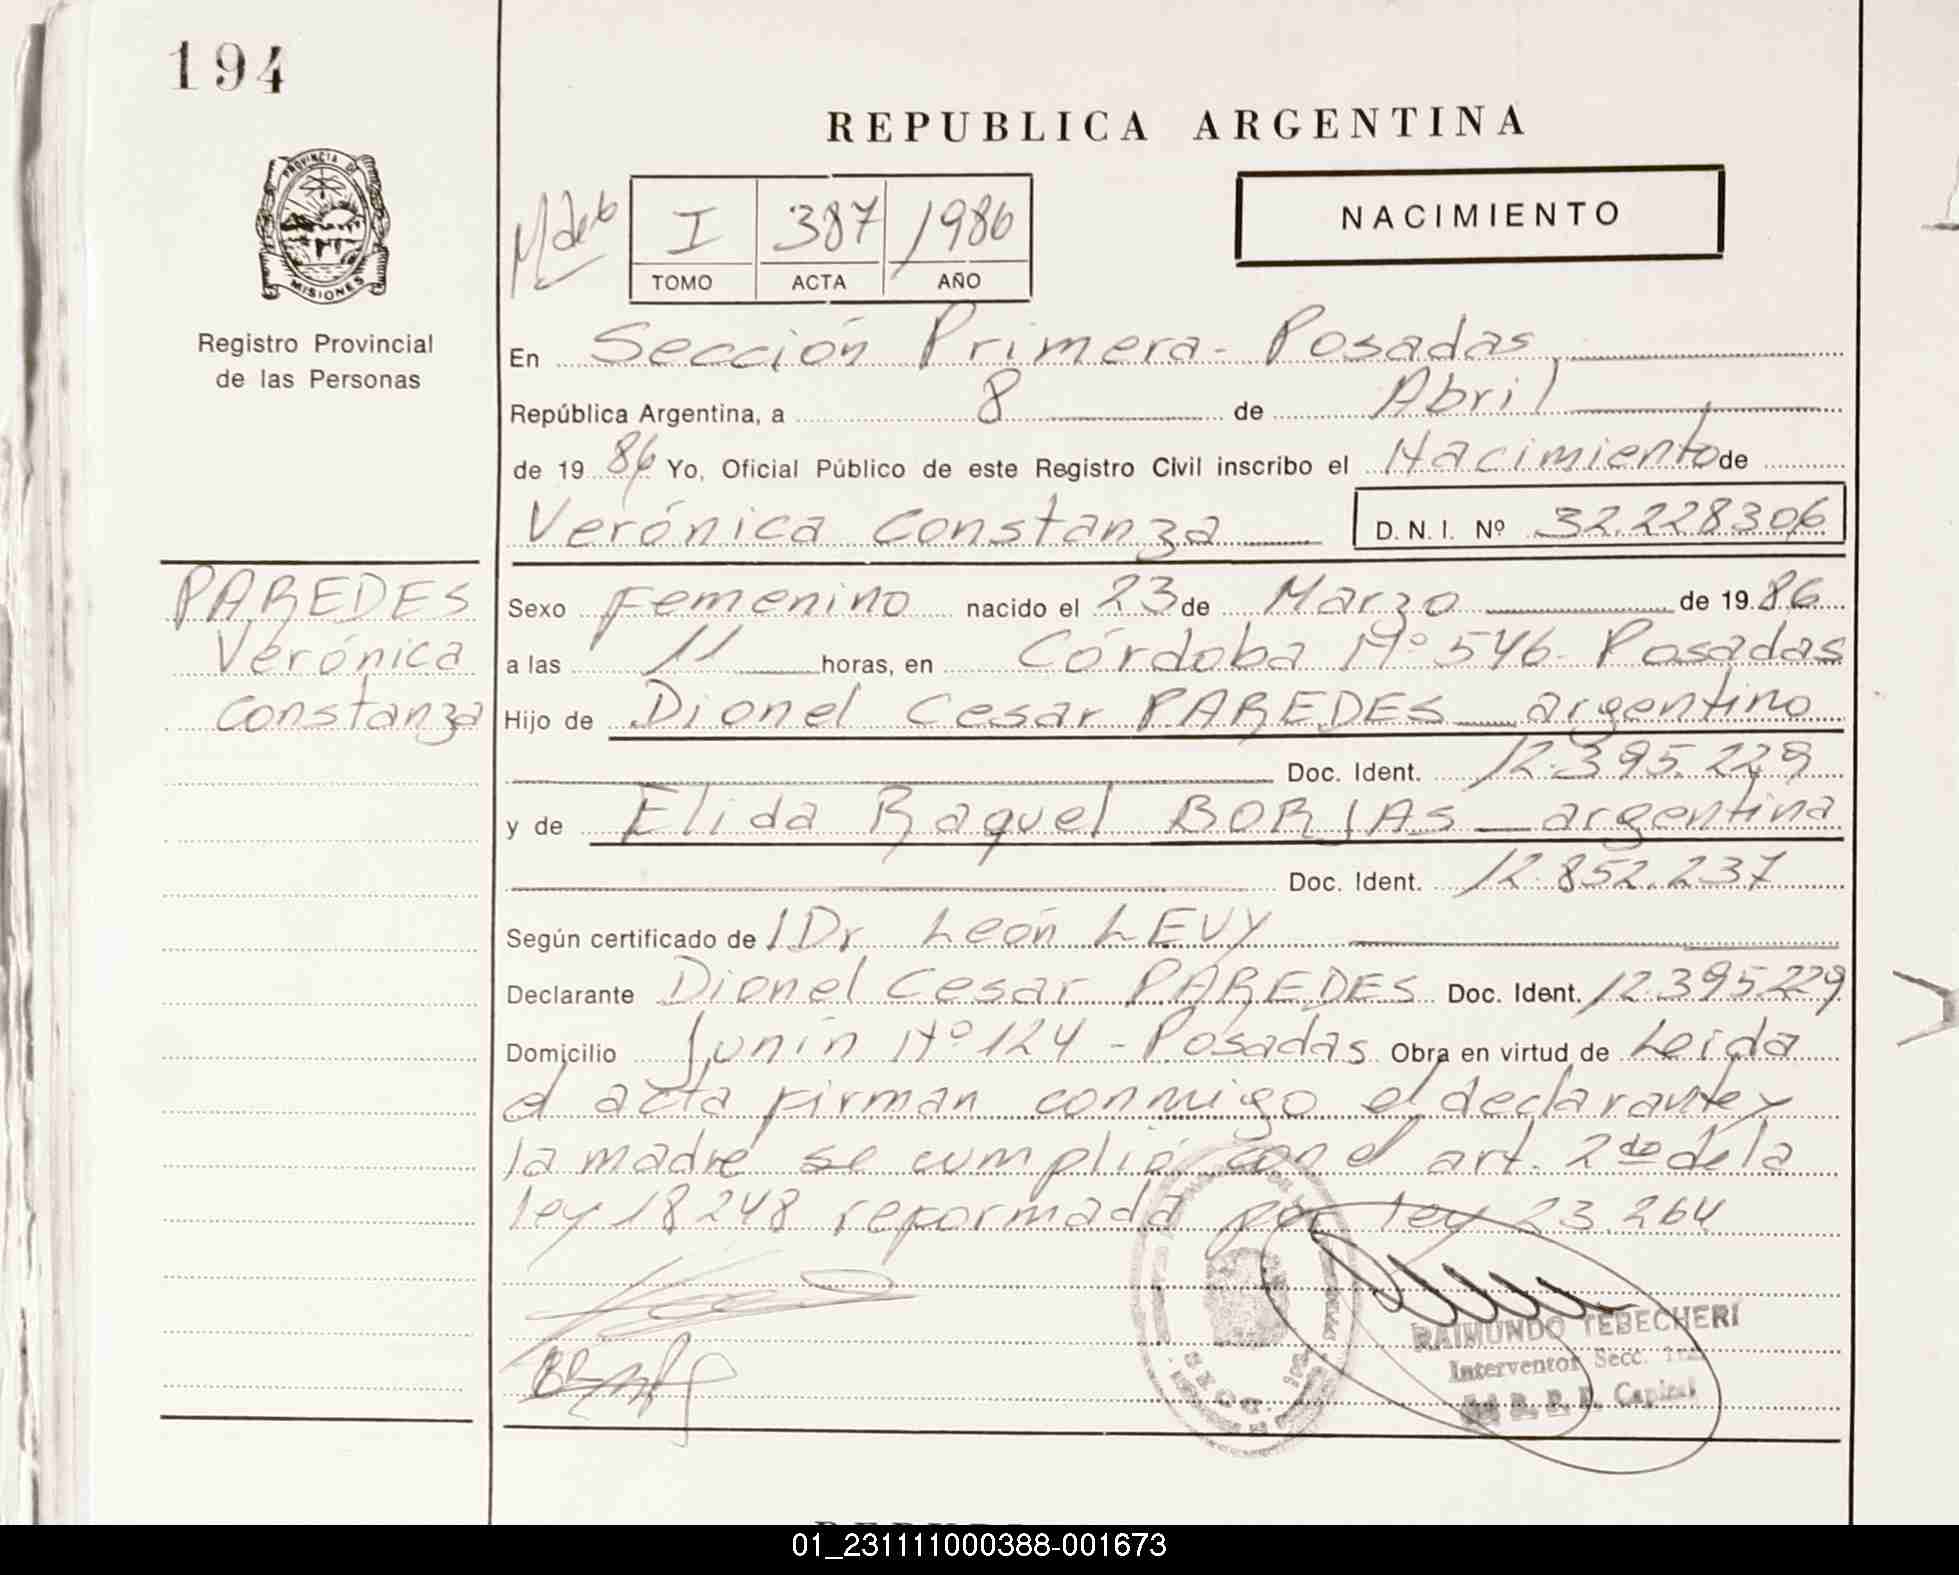 194
REPUBLICA ARGENTINA
PROVINCIA DE
MISIONES
Registro Provincial
de las Personas
I 387 1986
TOMO ACTA AÑO
NACIMIENTO
En Sección Primera - Posadas
República Argentina, a 8 de Abril
de 19 86 Yo, Oficial Público de este Registro Civil inscribo el Nacimiento de
Verónica Constanza D. N. I. Nº 32.228.306
PAREDES
Verónica
Constanza
Sexo Femenino nacido el 23 de Marzo de 19 86
a las 11 horas, en Córdoba Nº 546 - Posadas
Hijo de Dionel Cesar PAREDES argentino
Doc. Ident. 12.395.229
y de Elida Raquel BORJAS argentina
Doc. Ident. 12.852.237
Según certificado de Dr León LEVY
Declarante Dionel Cesar PAREDES Doc. Ident. 12.395.229
Domicilio Junín Nº 124 - Posadas Obra en virtud de Leida
el acta firman conmigo el declarante y
la madre se cumplió con el art. 2do de la
ley 18248 reformada por ley 23.264
RAIMUNDO TEBECHERI
Interventor Secc. 1ra
R. P. P. Capital
01_231111000388-001673